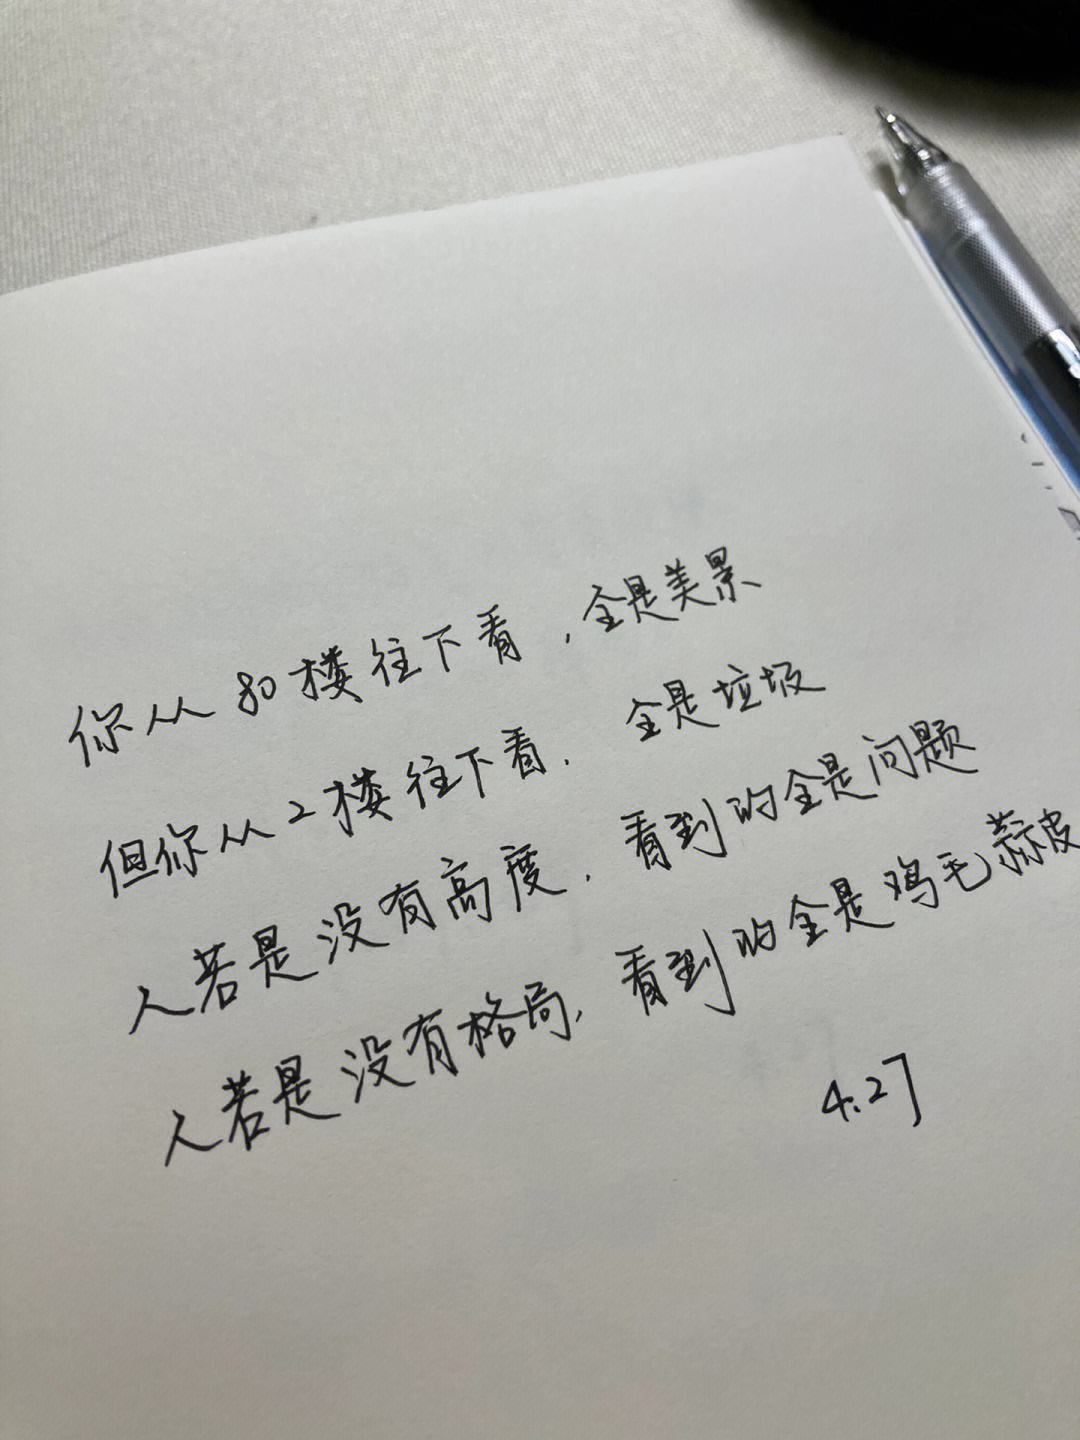 你从80楼往下看,全是美景
但你从2楼往下看.全是垃圾
人若是没有高度,看到的全是问题
人若是没有格局,看到的全是鸡毛蒜皮
4.27